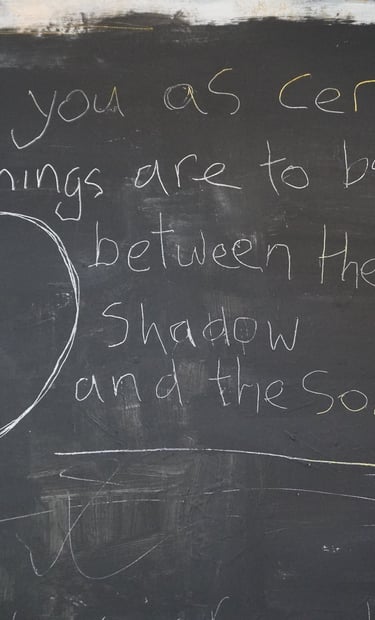 you as cer
hings are to be
between the
Shadow
and the So